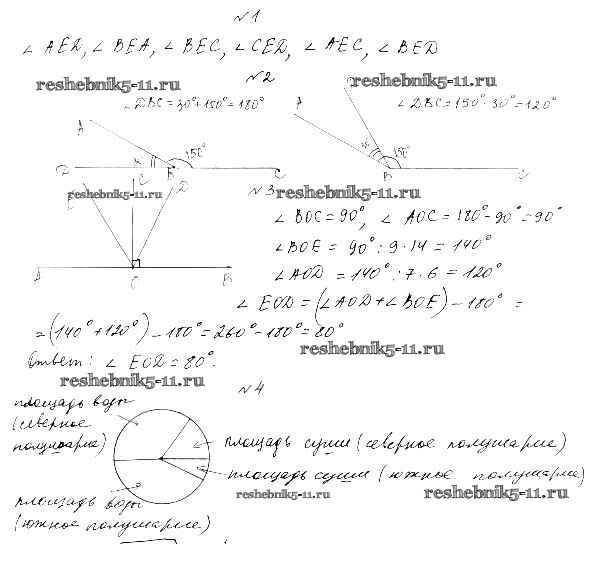 №1
∠ AED, ∠ BEA, ∠ BEC, ∠ CED, ∠ AEC, ∠ BED
№2
reshebnik5-11.ru
reshebnik5-11.ru
∠DBC = 30°+150° = 180°
∠DBC = 150°-30° = 120°
A
150°
D
B
C
A
150°
B
C
reshebnik5-11.ru
C
E
D
A
C
B
№3
reshebnik5-11.ru
∠ BOC = 90°, ∠ AOC = 180°-90° = 90°
∠BOE = 90° : 9 · 14 = 140°
∠AOD = 140° : 7 · 6 = 120°
∠ EOD = (∠AOD + ∠BOE) - 180° =
= (140° + 120°) - 180° = 260° - 180° = 80°
reshebnik5-11.ru
Ответ: ∠ EOD = 80°.
reshebnik5-11.ru
№4
площадь воды
(северное
полушарие)
площадь суши (северное полушарие)
площадь суши (южное полушарие)
reshebnik5-11.ru
reshebnik5-11.ru
площадь воды
(южное полушарие)